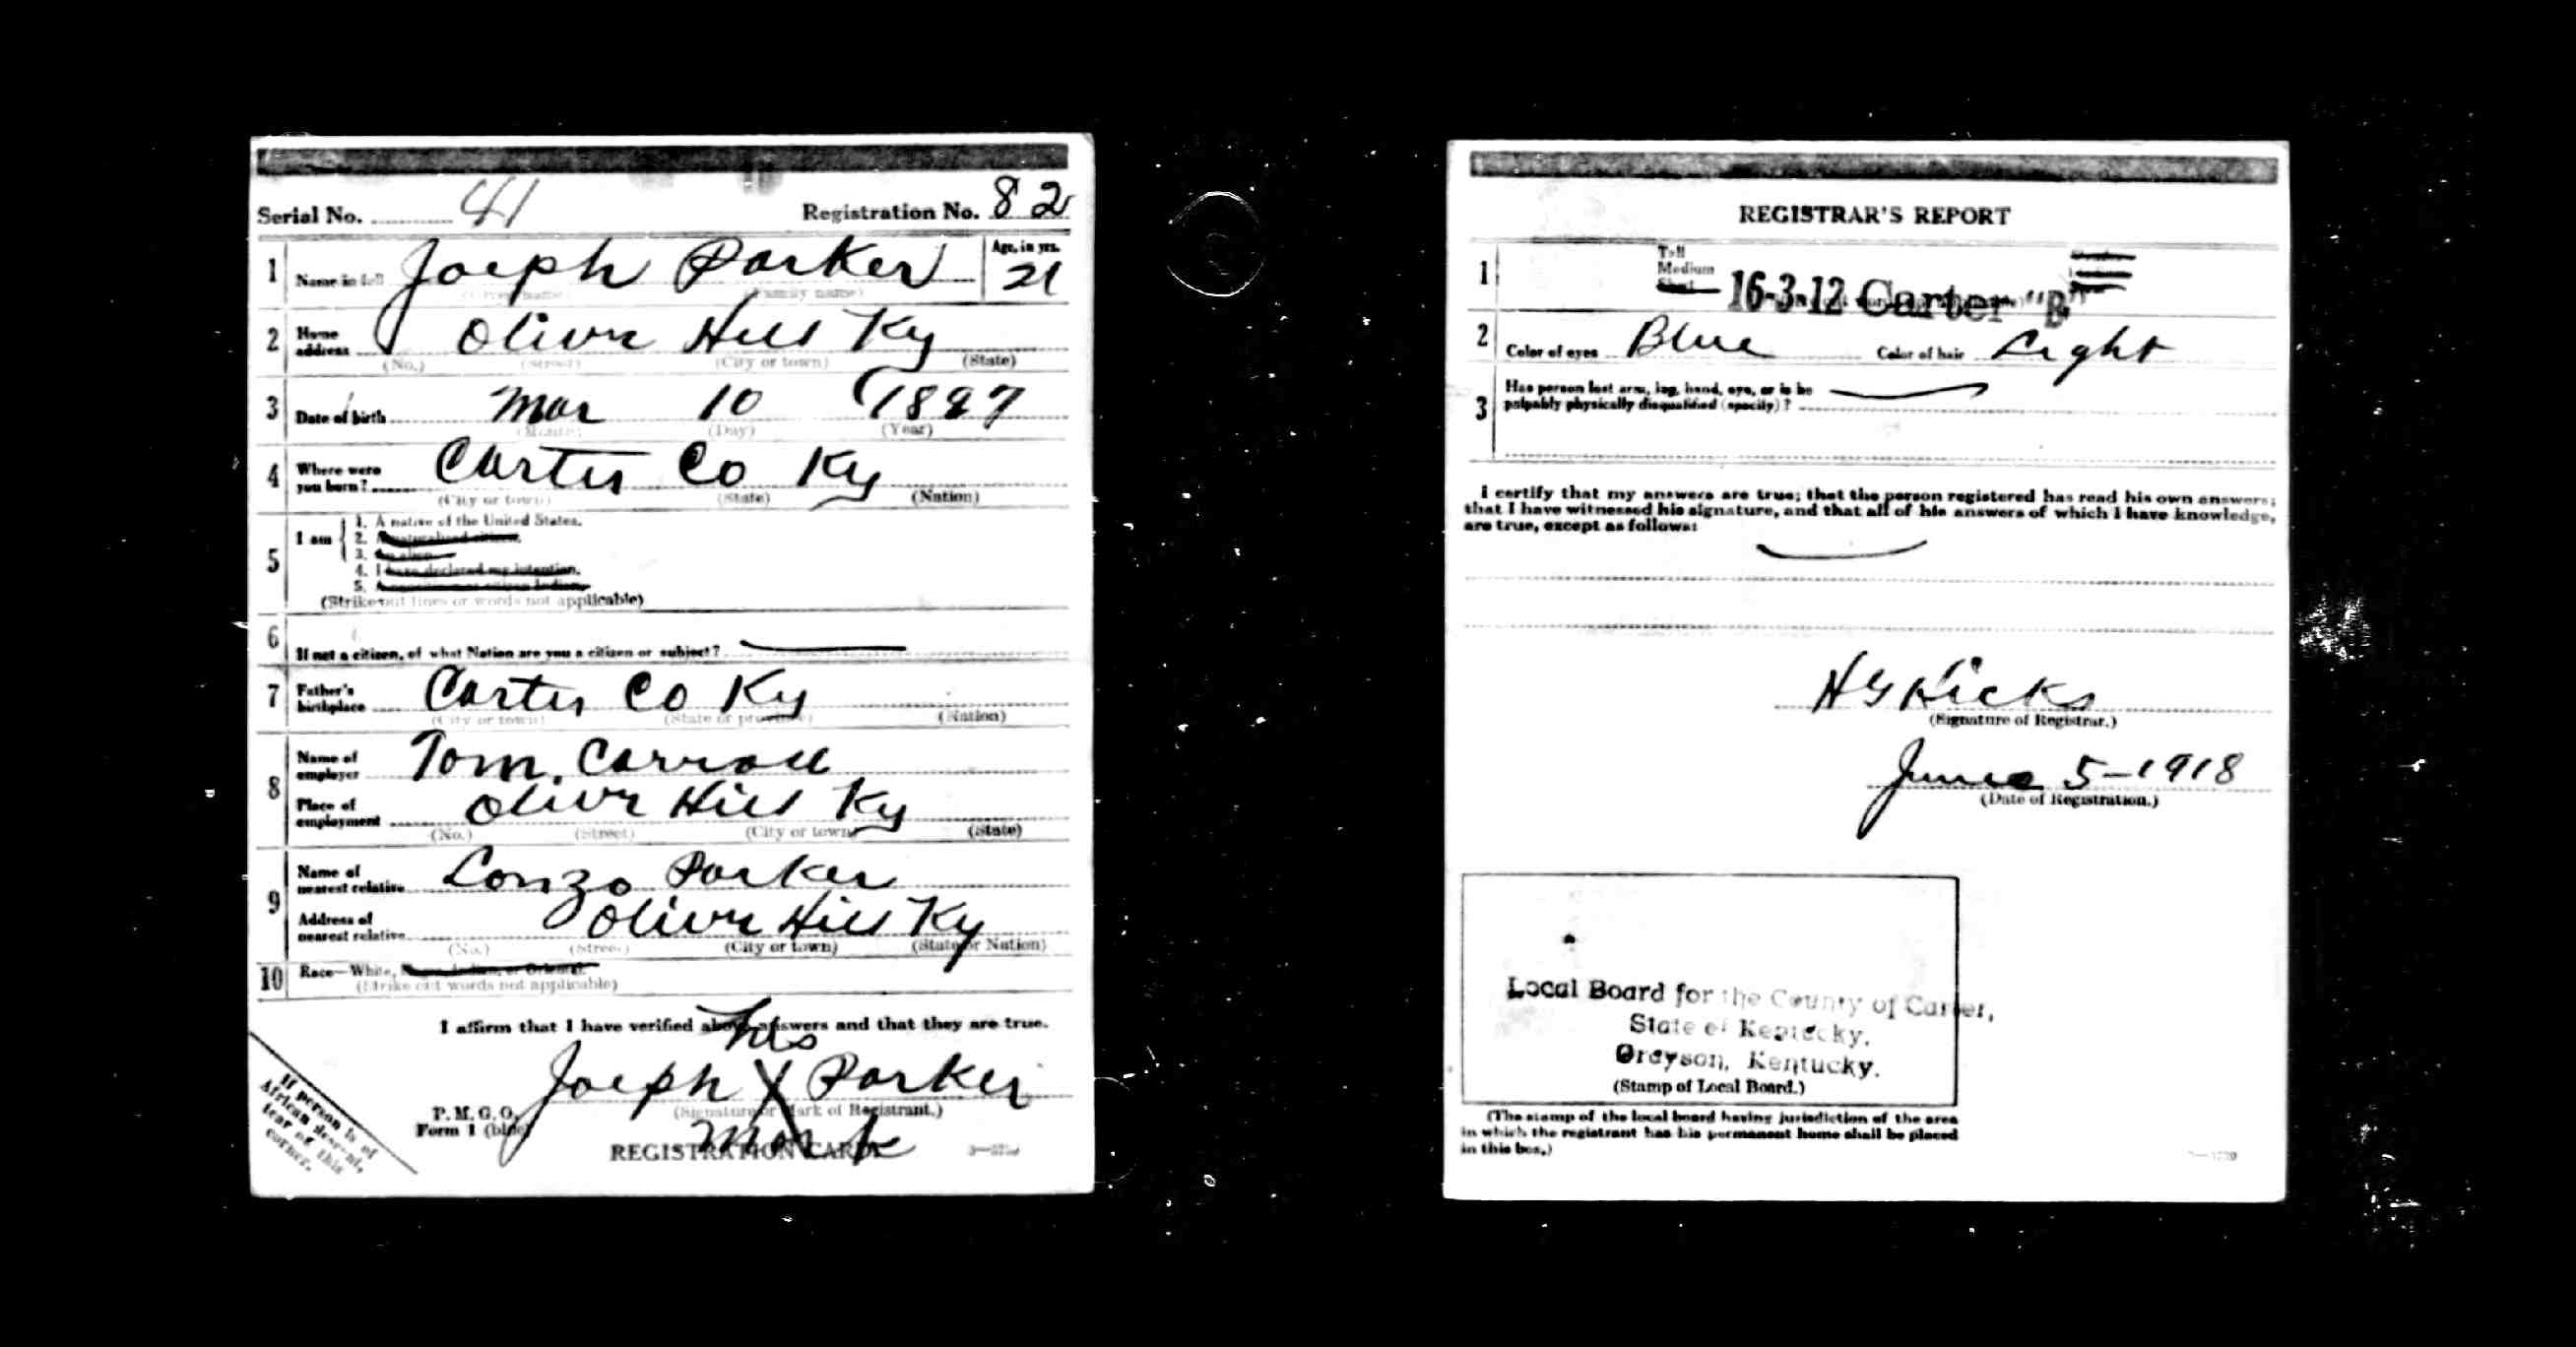 Serial No. 41 Registration No. 82
1 Name in full Joeph Parker Age, in yrs. 21
(Given name) (Family name)
2 Home address Olive Hill Ky
(No.) (Street) (City or town) (State)
3 Date of birth Mar 10 1897
(Month) (Day) (Year)
4 Where were you born? Carter Co Ky
(City or town) (State) (Nation)
5 I am
1. A native of the United States.
2. A naturalized citizen.
3. An alien.
4. I have declared my intention.
5. A noncitizen or citizen Indian.
(Strike out lines or words not applicable)
6 If not a citizen, of what Nation are you a citizen or subject?
7 Father's birthplace Carter Co Ky
(City or town) (State or province) (Nation)
8 Name of employer Tom. Carroll
Place of employment Olive Hill Ky
(No.) (Street) (City or town) (State)
9 Name of nearest relative Lonzo Parker
Address of nearest relative Olive Hill Ky
(No.) (Street) (City or town) (State or Nation)
10 Race—White, Negro, Indian, or Oriental.
(Strike out words not applicable)
I affirm that I have verified above answers and that they are true.
his
Joeph X Parker
(Signature or Mark of Registrant.)
mark
P. M. G. O.
Form 1 (blue)
REGISTRATION CARD.
If person is of
African descent,
tear of this
corner.
REGISTRAR'S REPORT
1 Tall
Medium
Short
16-3-12 Carter "B"
2 Color of eyes Blue Color of hair Light
3 Has person lost arm, leg, hand, eye, or is he
palpably physically disqualified (specify)?
I certify that my answers are true; that the person registered has read his own answers;
that I have witnessed his signature, and that all of his answers of which I have knowledge,
are true, except as follows:
H G Hicks
(Signature of Registrar.)
June 5-1918
(Date of Registration.)
Local Board for the County of Carter,
State of Kentucky.
Grayson, Kentucky.
(Stamp of Local Board.)
(The stamp of the local board having jurisdiction of the area
in which the registrant has his permanent home shall be placed
in this box.)